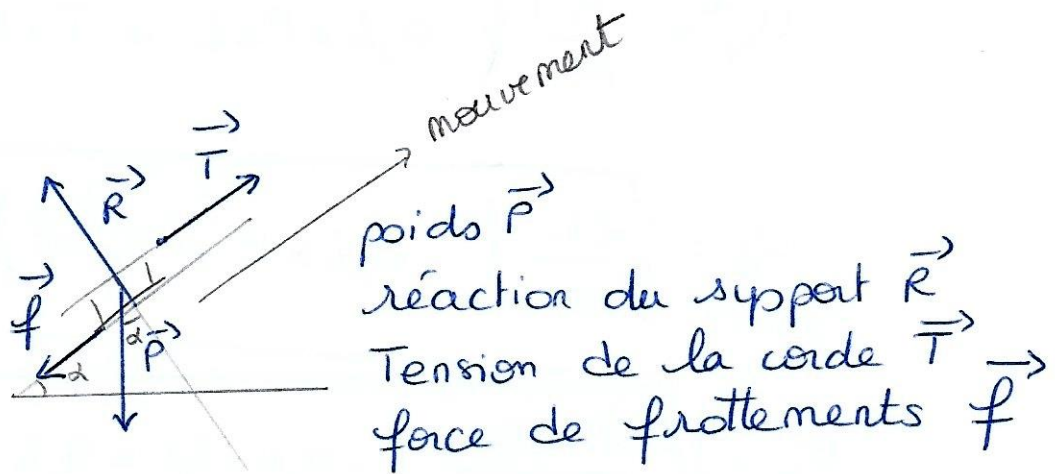 mouvement
T
R
f
α
α
P
poids P
réaction du support R
Tension de la corde T
force de frottements f